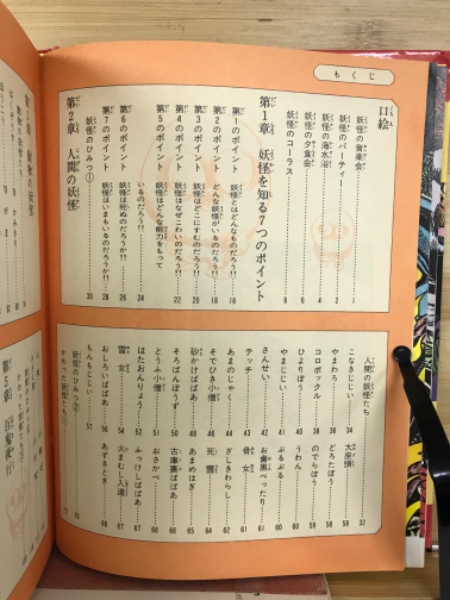 もくじ
口絵
妖怪の音楽会……1
妖怪のパーティー……2
妖怪の海水浴……4
妖怪の夕食会……6
妖怪のコーラス……8
第1章 妖怪を知る7つのポイント
第1のポイント 妖怪とはどんなものだろう!!……16
第2のポイント どんな妖怪がいるのだろう!!……18
第3のポイント 妖怪はどこにすむのだろう!!……20
第4のポイント 妖怪はなぜこわいのだろう!!……22
第5のポイント 妖怪はどんな能力をもって
いるのだろう!!……24
第6のポイント 妖怪は死ぬのだろうか!!……26
第7のポイント 妖怪はいまもいるのだろうか!!……28
妖怪のひみつ①……30
第2章 人間の妖怪
人間の妖怪たち……32
こなきじじい……34
やまわろ……36
コロポックル……38
ひょりぼう……40
やまじじい……41
さんせい……42
テッチ……43
あまのじゃく……44
そでひき小僧……46
砂かけばばあ……48
そろばんぼうず……50
とうふ小僧……51
はたおんりょう……52
雪女……54
おしろいばばあ……56
もんもじじい……57
妖怪のひみつ②
かわった妖怪たち①……70
大座頭……58
どろたぼう……58
のでらぼう……59
うわん……60
ぶるぶる……60
お歯黒べったり……61
骨女……61
ざしきわらし……62
死霊……64
あまめはぎ……65
古庫裏ばばあ……66
おさかべ……66
ふっけしばばあ……67
火まむし入道……67
あずきとぎ……68
第5章
百鬼夜行